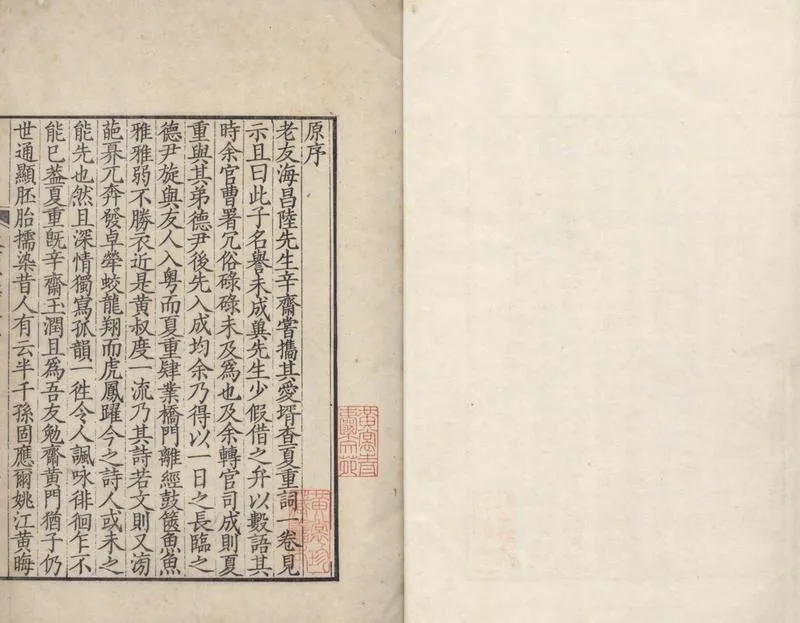 原序
老友海昌陸先生辛齋嘗攜其愛壻查夏重詞一卷見
示且曰此子名譽未成兾先生少假借之弁以數語其
時余官曹署冗俗碌碌未及爲也及余轉官司成則夏
重與其弟德尹後先入成均余乃得以一日之長臨之
德尹旋與友人入粵而夏重肄業橋門離經鼓篋魚魚
雅雅弱不勝衣近是黃叔度一流乃其詩若文則又滂
葩奡兀奔發卓犖蛟龍翔而虎鳳躍今之詩人或未之
能先也然且深情獨寫孤韻一徃令人諷咏徘徊乍不
能已葢夏重旣辛齋玉潤且爲吾友勉齋黃門猶子仍
世通顯胚胎擩染昔人有云半千孫固應爾姚江黃晦
黃裳青
囊文苑